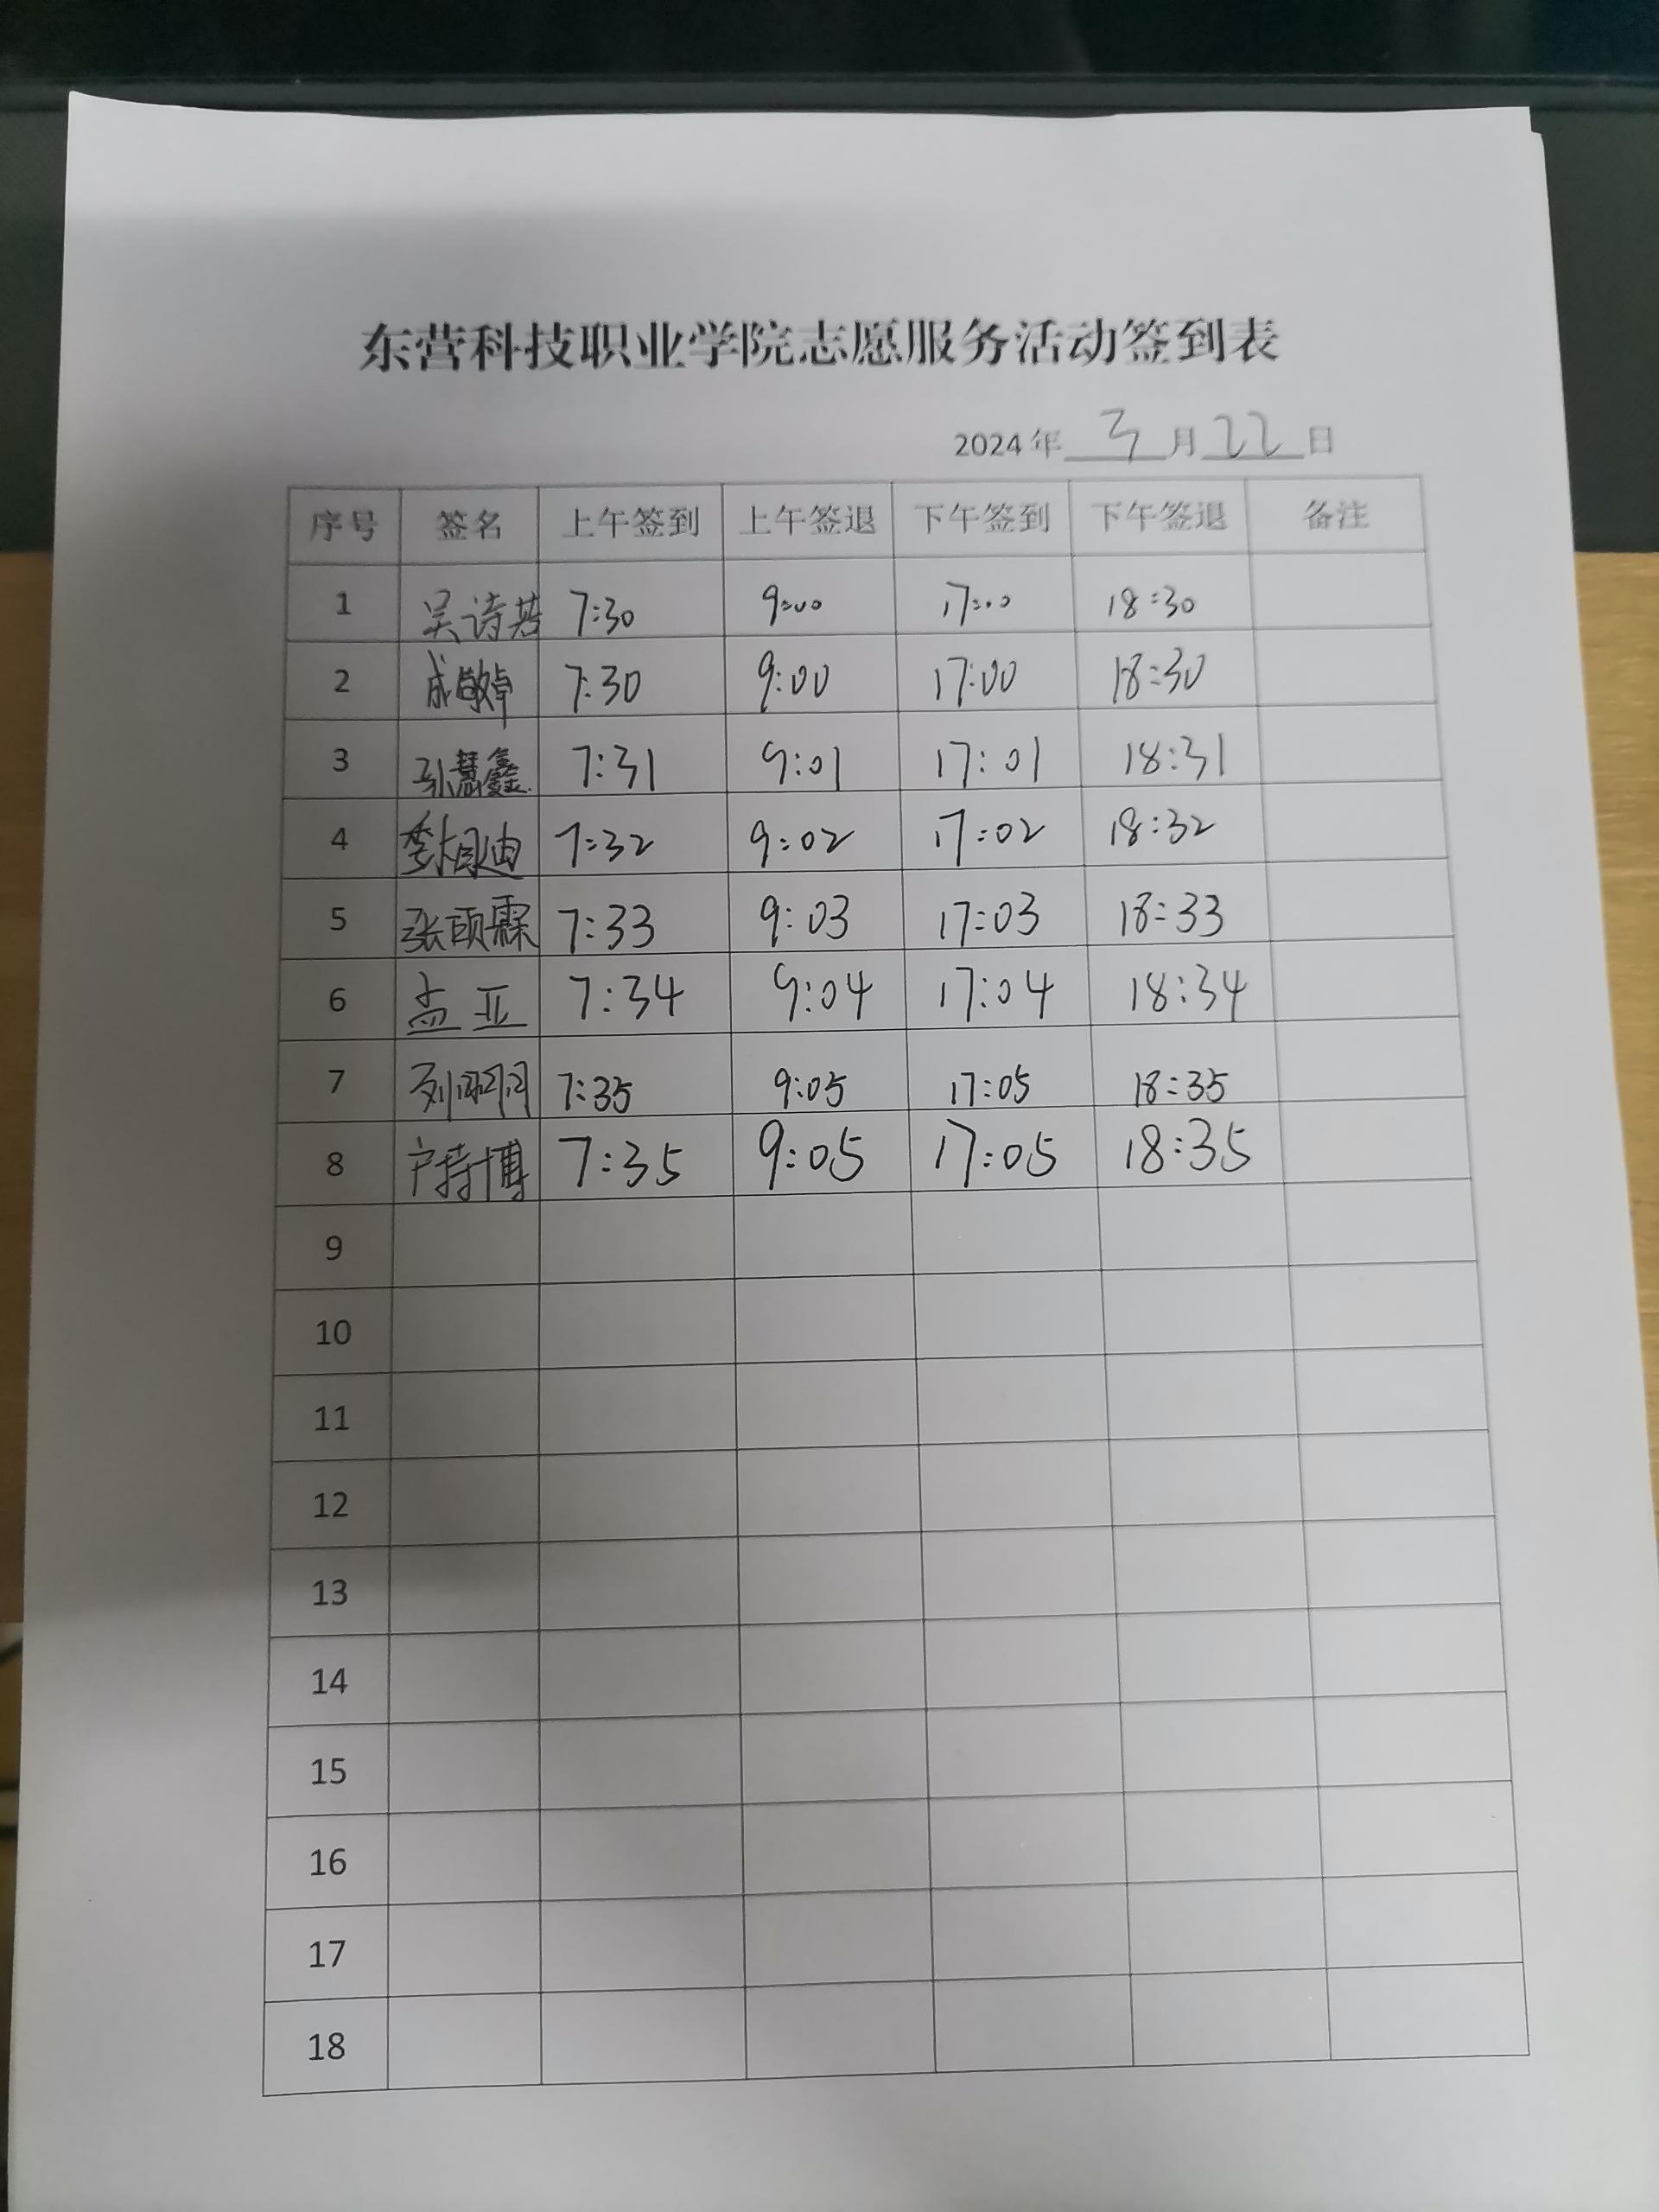 东营科技职业学院志愿服务活动签到表
2024 年 3 月 22 日
序号 签名 上午签到 上午签退 下午签到 下午签退 备注
1 吴诗若 7:30 9:00 17:00 18:30
2 成敬卓 7:30 9:00 17:00 18:30
3 孙慧鑫 7:31 9:01 17:01 18:31
4 7:32 9:02 17:02 18:32
5 张硕霖 7:33 9:03 17:03 18:33
6 孟亚 7:34 9:04 17:04 18:34
7 7:35 9:05 17:05 18:35
8 户持博 7:35 9:05 17:05 18:35
9
10
11
12
13
14
15
16
17
18